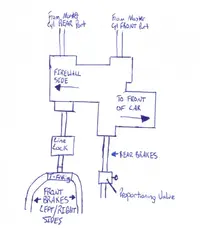 From Master
Cyl REAR Port
From Master
Cyl FRONT Port
FIREWALL
SIDE
TO FRONT
OF CAR
Line
Lock
REAR BRAKES
T-Fitting
FRONT
BRAKES
LEFT/RIGHT
SIDES
Proportioning Valve